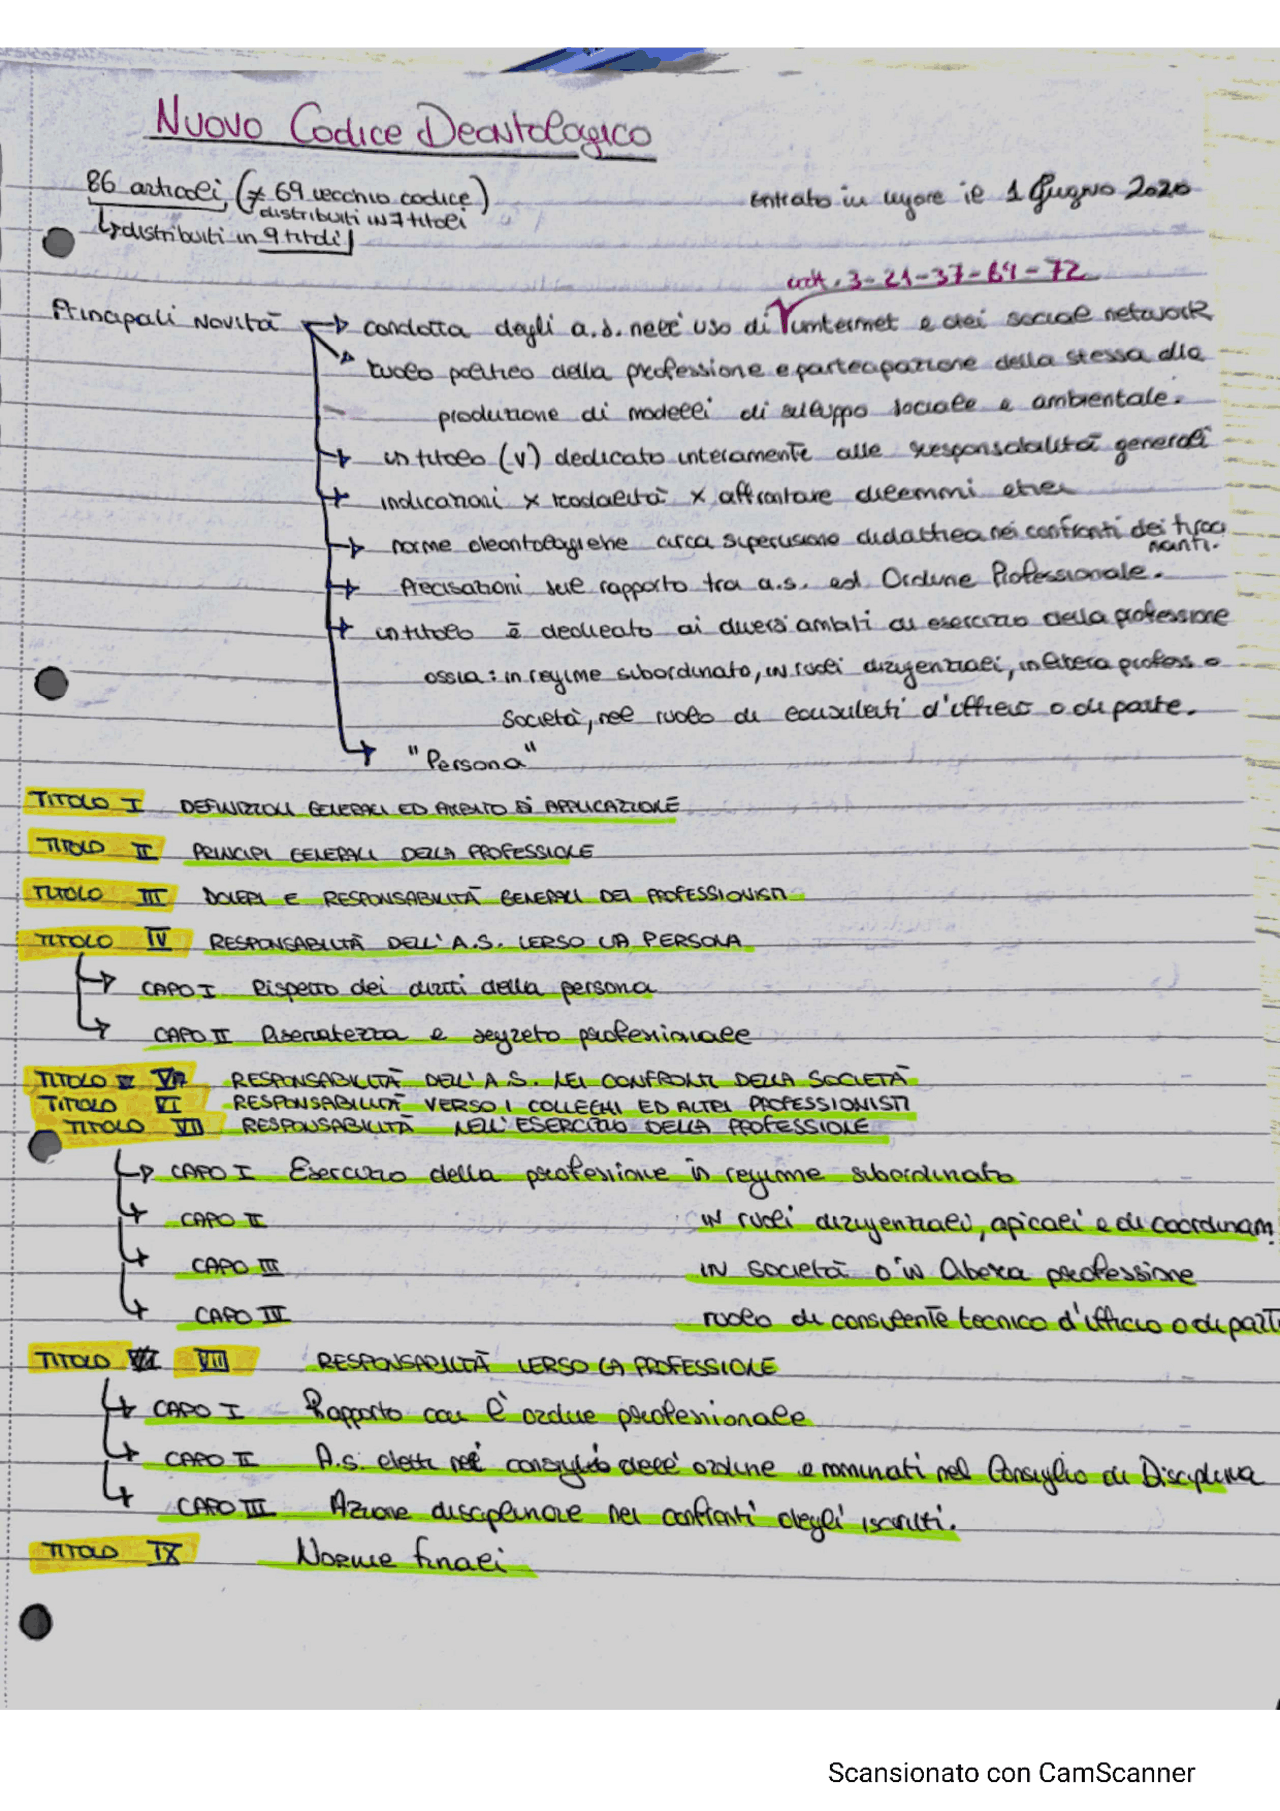 Nuovo Codice Deontologico
86 articoli, (≠ 69 vecchio codice)
distribuiti in 7 titoli
entrato in vigore il 1 Giugno 2020
↳ distribuiti in 9 titoli
artt. 3-21-37-64-72
Principali novità → condotta degli a.s. nell'uso di internet e dei social network
→ ruolo politico della professione e partecipazione della stessa alla
produzione di modelli di sviluppo sociale e ambientale.
→ un titolo (V) dedicato interamente alle responsabilità generali
→ indicazioni x modalità x affrontare dilemmi etici
→ norme deontologiche circa supervisione didattica nei confronti dei tiroci
nanti.
→ Precisazioni sul rapporto tra a.s. ed Ordine Professionale.
→ un titolo è dedicato ai diversi ambiti di esercizio della professione
ossia: in regime subordinato, in ruoli dirigenziali, in libera profess o
società, nel ruolo di consulenti d'ufficio o di parte.
→ "Persona"
TITOLO I DEFINIZIONI GENERALI ED AMBITO DI APPLICAZIONE
TITOLO II PRINCIPI GENERALI DELLA PROFESSIONE
TITOLO III DOVERI E RESPONSABILITÀ GENERALI DEI PROFESSIONISTI
TITOLO IV RESPONSABILITÀ DELL'A.S. VERSO LA PERSONA
→ CAPO I Rispetto dei diritti della persona
→ CAPO II Riservatezza e segreto professionale
TITOLO V RESPONSABILITÀ DELL'A.S. NEI CONFRONTI DELLA SOCIETÀ
TITOLO VI RESPONSABILITÀ VERSO I COLLEGHI ED ALTRI PROFESSIONISTI
TITOLO VII RESPONSABILITÀ NELL'ESERCIZIO DELLA PROFESSIONE
→ CAPO I Esercizio della professione in regime subordinato
→ CAPO II in ruoli dirigenziali, apicali e di coordinam
→ CAPO III in società o in libera professione
→ CAPO IV ruolo di consulente tecnico d'ufficio o di parte
TITOLO VIII RESPONSABILITÀ VERSO LA PROFESSIONE
→ CAPO I Rapporto con l'ordine professionale
→ CAPO II A.s. eletti nel consiglio dell'ordine e nominati nel Consiglio di Disciplina
→ CAPO III Azione disciplinare nei confronti degli iscritti.
TITOLO IX Norme finali
Scansionato con CamScanner